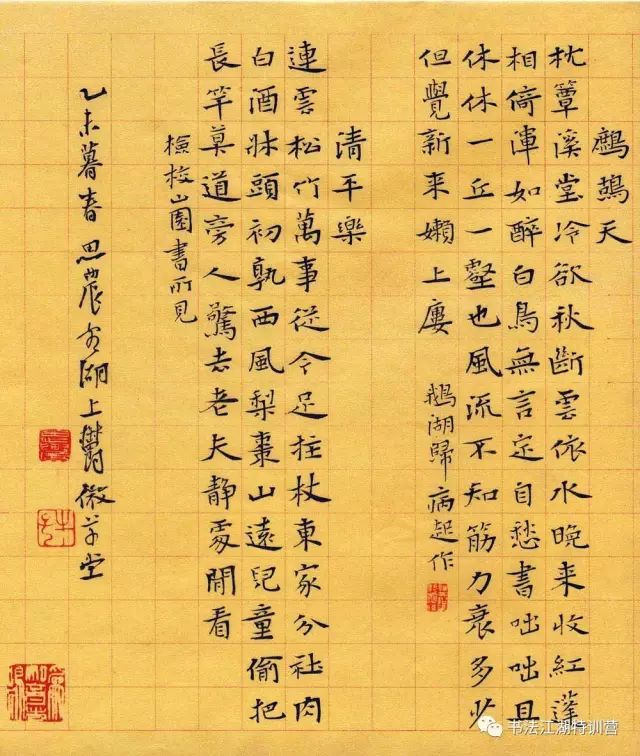 鷓鴣天
枕簟溪堂冷欲秋斷雲依水晚来收紅蓮
相倚渾如醉白鳥無言定自愁書咄咄且
休休一丘一壑也風流不知筋力衰多少
但覺新来嬾上廔 鵝湖歸病起作
清平樂
連雲松竹萬事從今足拄杖東家分社肉
白酒牀頭初孰西風梨棗山遠兒童偷把
長竿莫道旁人驚去老夫静處閒看
檢校山園書所見
乙未暮春思農於湖上草堂
书法江湖特训营